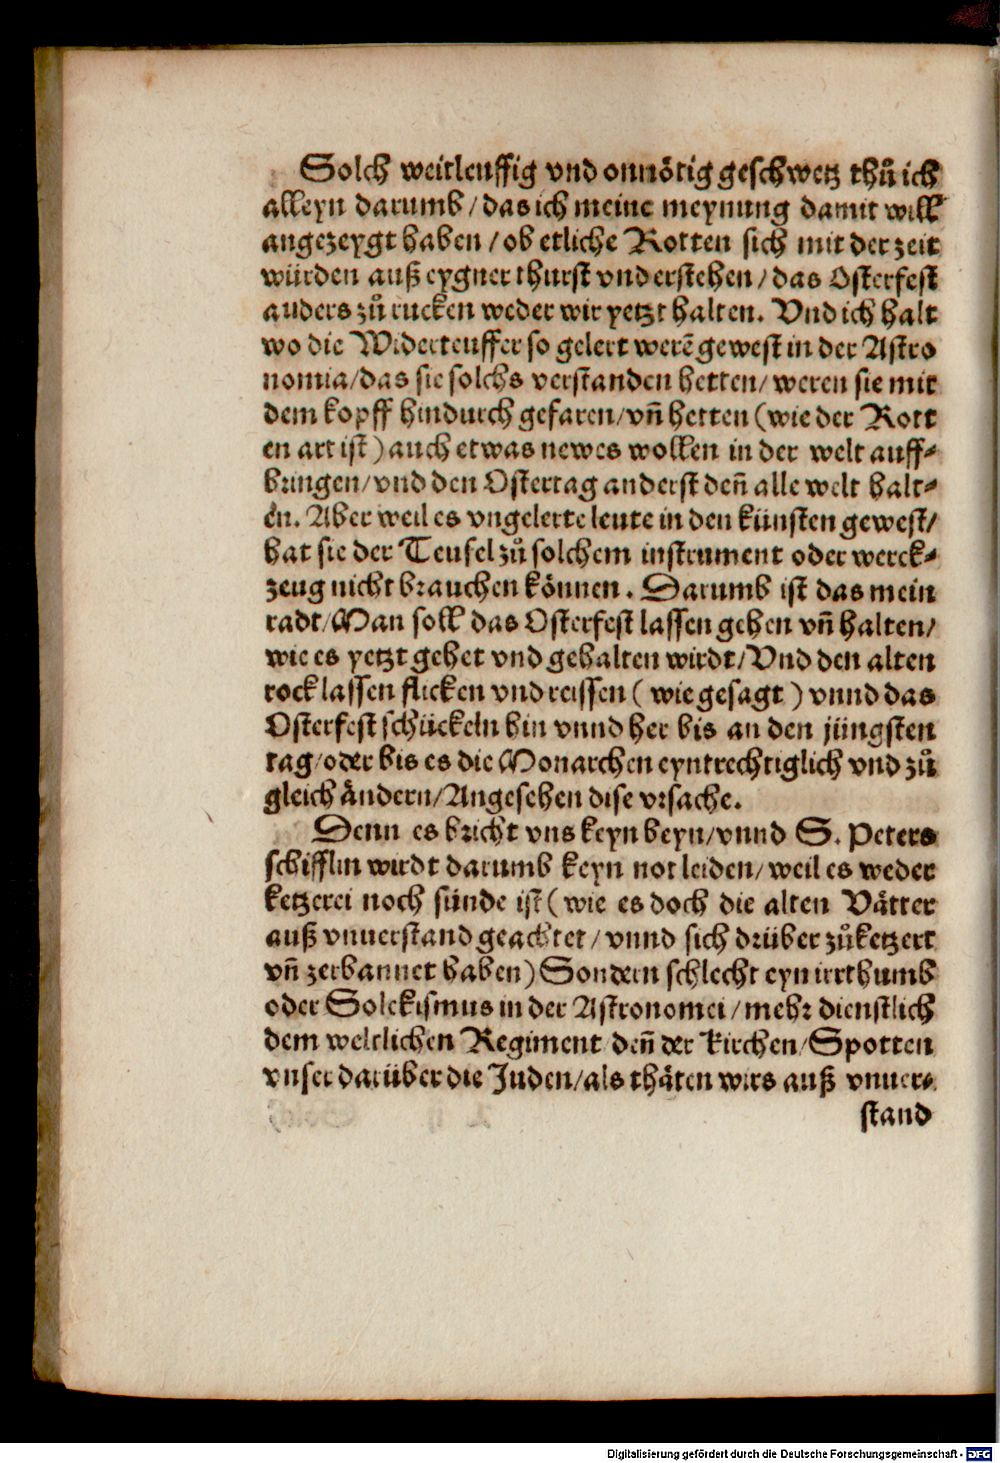 Solch weitleuffig vnd onnötig geschwetz thů ich
alleyn darumb / das ich meine meynung damit will
angezeygt haben / ob etliche Rotten sich mit der zeit
würden auß eygner thurst vnderstehen / das Osterfest
anders zů rucken weder wir yetzt halten. Vnd ich halt
wo die Widerteuffer so gelert werē gewest in der Astro
nomia/das sie solchs verstanden hetten/ weren sie mit
dem kopff hindurch gefaren/vñ hetten (wie der Rott
en art ist) auch etwas newes wollen in der welt auff⸗
bringen/vnd den Ostertag anderst deñ alle welt halt⸗
en. Aber weil es vngelerte leute in den künsten gewest/
hat sie der Teufel zů solchem instrument oder werck⸗
zeug nicht brauchen können. Darumb ist das mein
radt/Man soll das Osterfest lassen gehen vñ halten/
wie es yetzt gehet vnd gehalten wirdt/Vnd den alten
rock lassen flicken vnd reissen ( wie gesagt ) vnnd das
Osterfest schückeln hin vnnd her bis an den jüngsten
tag/oder bis es die Monarchen eyntrechtiglich vnd zů
gleich ändern/Angesehen dise vrsache.
Denn es bricht vns keyn beyn/vnnd S. Peters
schifflin wirdt darumb keyn not leiden/weil es weder
ketzerei noch sünde ist ( wie es doch die alten Vätter
auß vnuerstand geachtet / vnnd sich drüber zůketzert
vñ zerbannet haben) Sondern schlecht eyn irrthumb
oder Solekismus in der Astronomei / mehr dienstlich
dem weltlichen Regiment deñ der kirchen/Spotten
vnser darüber die Juden/als thäten wirs auß vnuer⸗
stand
Digitalisierung gefördert durch die Deutsche Forschungsgemeinschaft - DFG